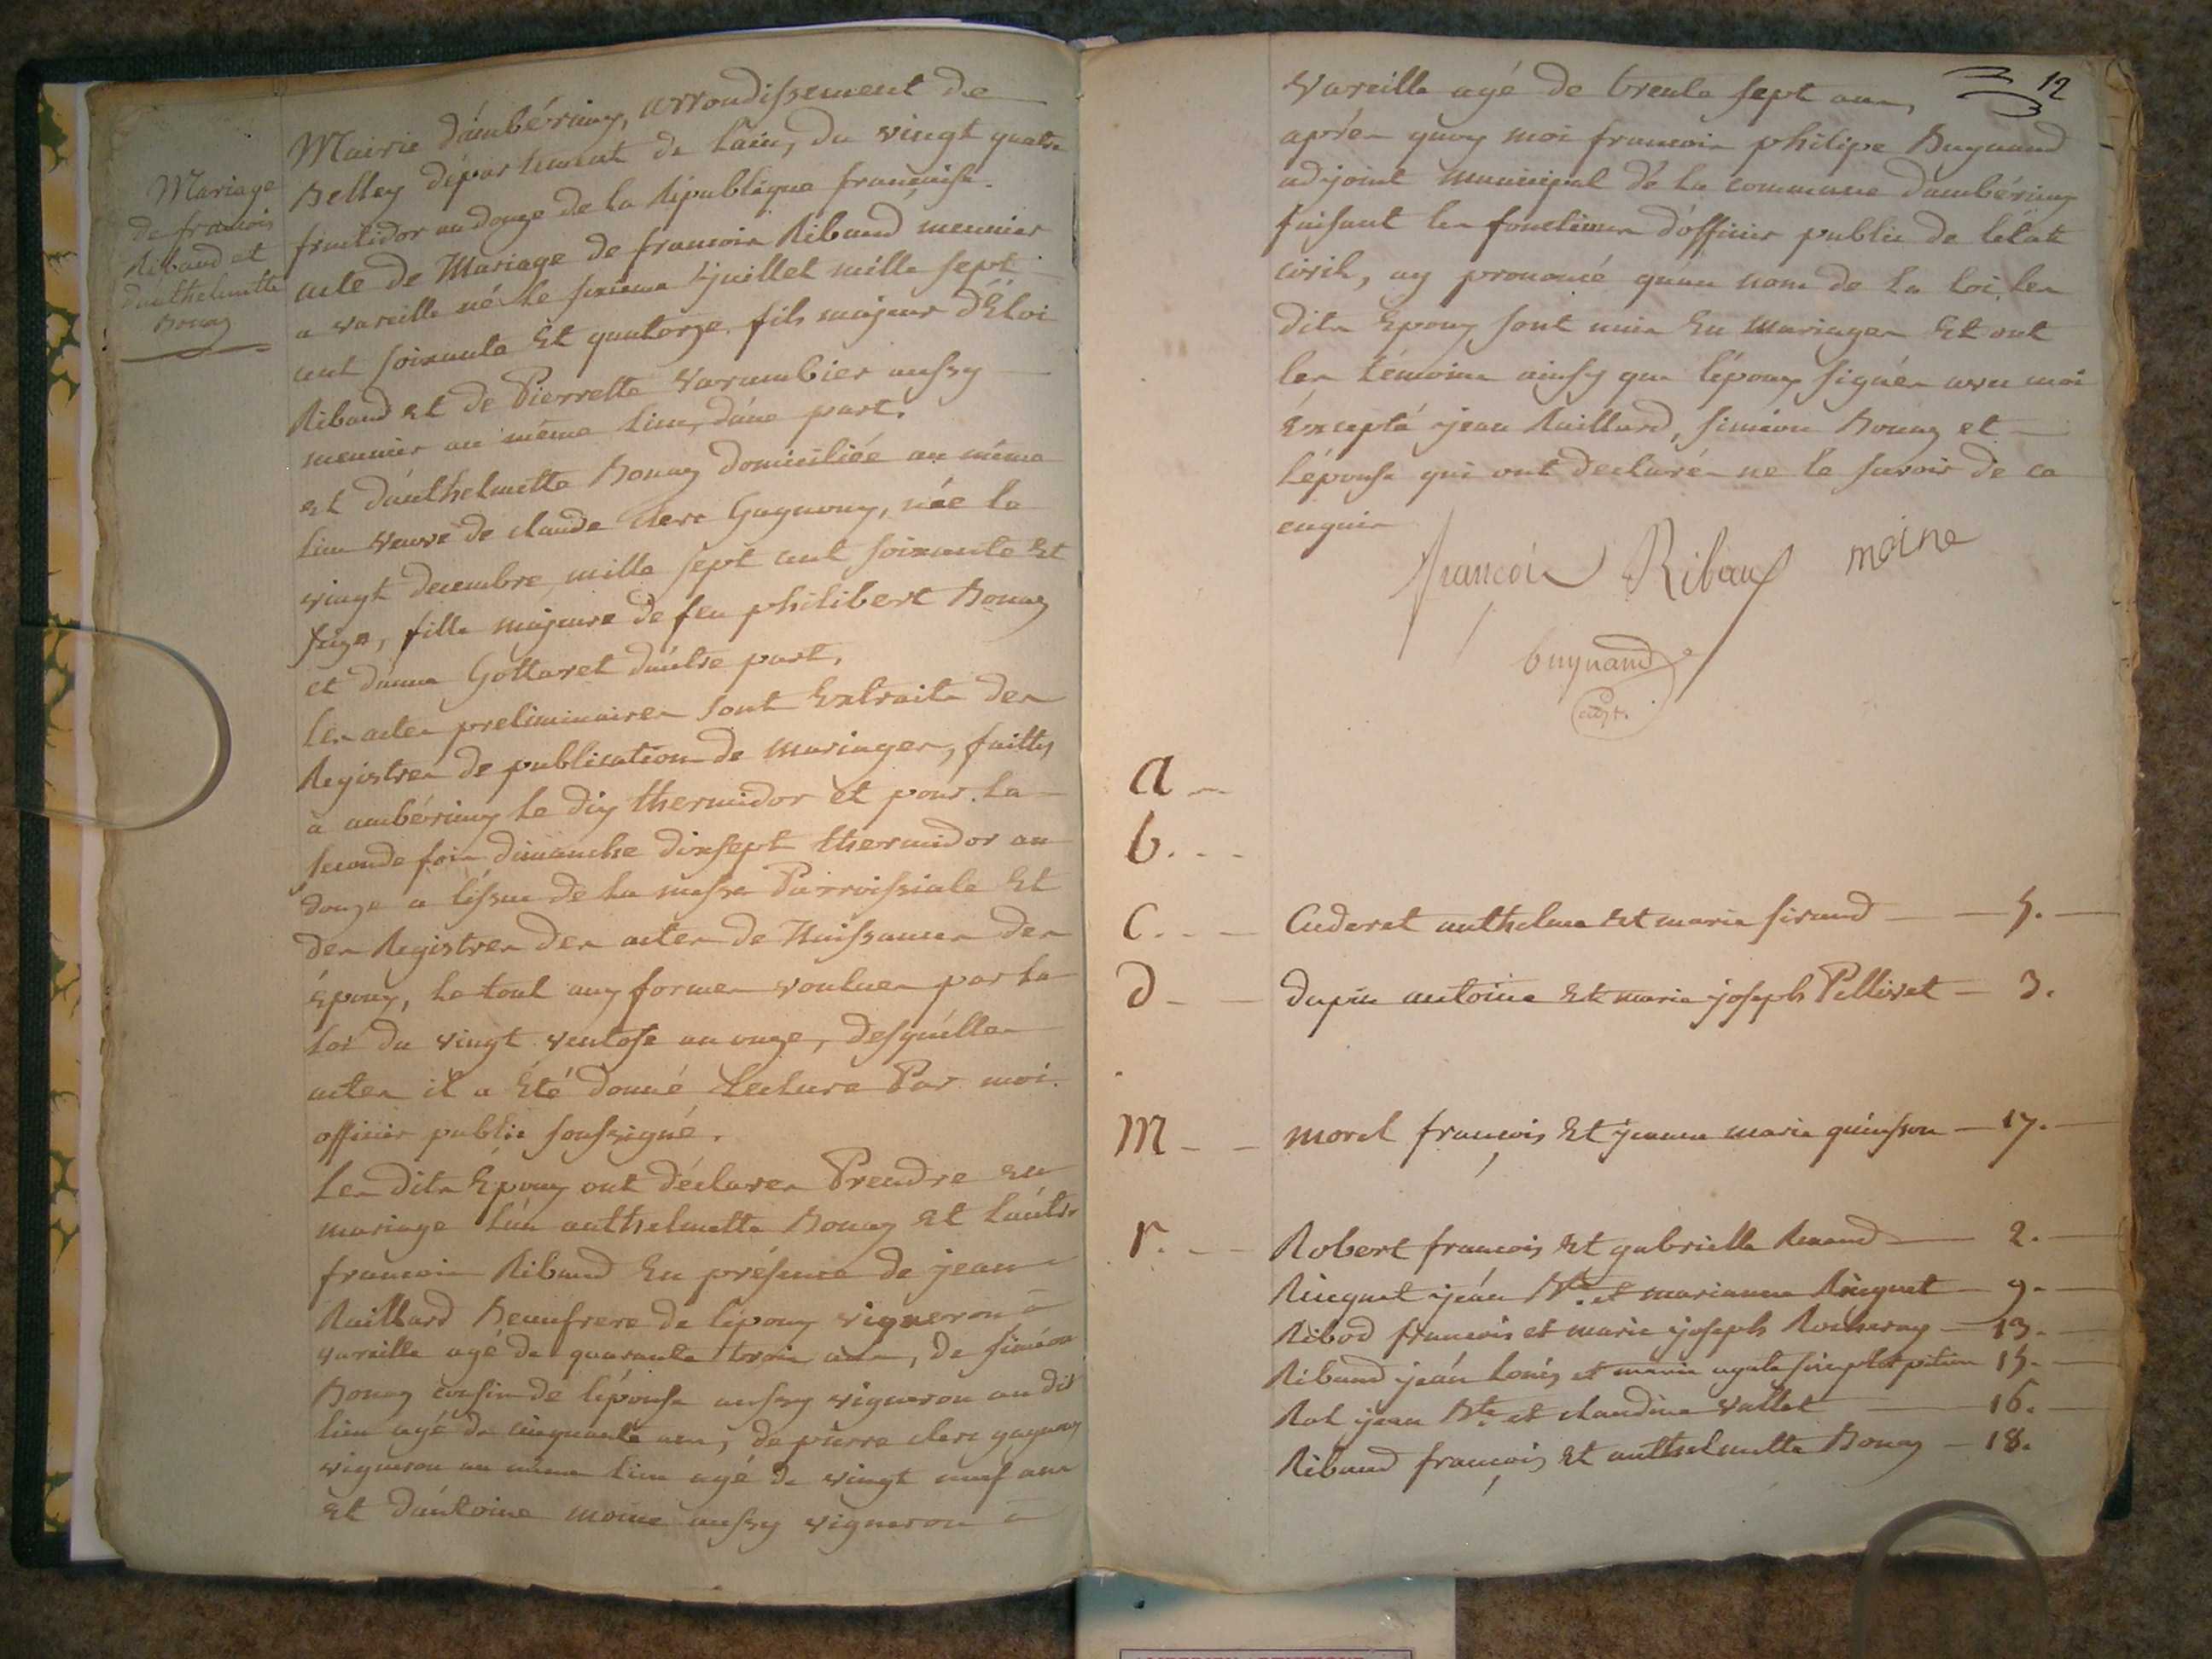 Mariage
de francois
Ribaud et
d'anthelmette
Bonaz
Mairie d'ambérieux, arrondissement de
Belley département de l'ain, du vingt quatre
fructidor an douze de la République française.
acte de Mariage de francois Ribaud meunier
a vareille né le sixieme juillet mille sept
cent soixante et quatorze, fils majeur d'Eloi
Ribaud et de Pierrette Varambier aussy
meunier au même lieu, d'une part.
et d'anthelmette Bonaz domiciliée au même
lieu veuve de claude clerc Gagnoux, née le
vingt decembre mille sept cent soixante et
seize, fille majeure de feu philibert Bonaz
et d'anne Gottaret d'autre part,
les actes preliminaires sont Extraits des
Registres de publication de mariages, faittes
a ambérieux le dix thermidor et pour la
seconde fois dimanche dixsept thermidor an
douze a l'issue de la messe Parroissiale Et
des Registres des actes de Naissances des
époux, le tout aux formes voulues par la
loi du vingt ventose an onze, desquelles
actes il a été donné lecture Par moi
officier public soussigné.
Les dits Epoux ont déclarés Prendre en
mariage l'un anthelmette Bonaz et l'autre
francois Ribaud En présence de jean
Raillard Beaufrere de l'époux vigneron à
vareille agé de quarante trois ans, de siméon
Bonaz cousin de l'épouse aussy vigneron au dit
lieu agé de cinquante ans, de pierre clerc gagnoux
vigneron au même lieu agé de vingt neuf ans
et d'antoine moine aussy vigneron à
12
Vareille agé de trente sept ans,
après quoy moi francois philipe Bugnand
adjoint municipal de la commune d'ambérieux
faisant les fonctions d'officier public de l'état
civil, ay prononcé qu'au nom de la loi, les
dits Epoux sont unis En mariages Et ont
les témoins ainsy que l'époux signés avec moi
Excepté jean Raillard, siméon Bonaz et
l'épouse qui ont declarés ne le savoir de ce
enquis
françois Ribaud moine
bugnand
adjt.
a
b
c Cuderet anthelme et marie sirand 5.
d dupin antoine Et marie joseph Pellivet 3.
m morel françois Et jeanne marie quinson 17.
r. Robert françois Et gabrielle Renaud 2.
Ricquet jean Bte et marianne Ricquet 9.
Ribod francois et marie joseph Rocheray 13.
Ribaud jean Louis et marie agate 15.
Rol jean Bte et claudine Vallet 16.
Ribaud françois Et anthelmette Bonaz 18.